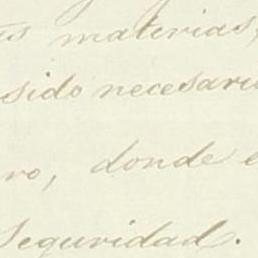 materias,
sido necesari
ro, donde e
Seguridad.